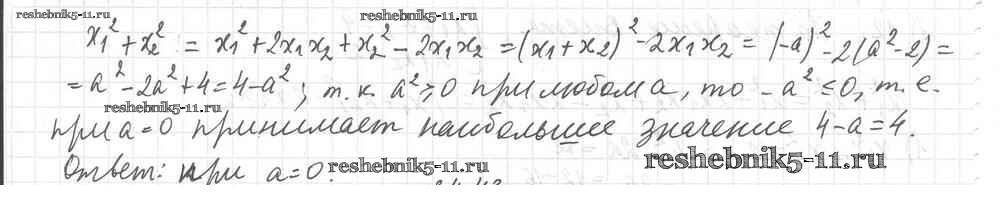 reshebnik5-11.ru reshebnik5-11.ru
x₁² + x₂² = x₁² + 2x₁x₂ + x₂² - 2x₁x₂ = (x₁ + x₂)² - 2x₁x₂ = (-a)² - 2(a² - 2) =
= a² - 2a² + 4 = 4 - a²; т.к. a² ≥ 0 при любом a, то -a² ≤ 0, т.е.
reshebnik5-11.ru
при a = 0 принимает наибольшее значение 4 - a = 4.
Ответ: при a = 0. reshebnik5-11.ru reshebnik5-11.ru